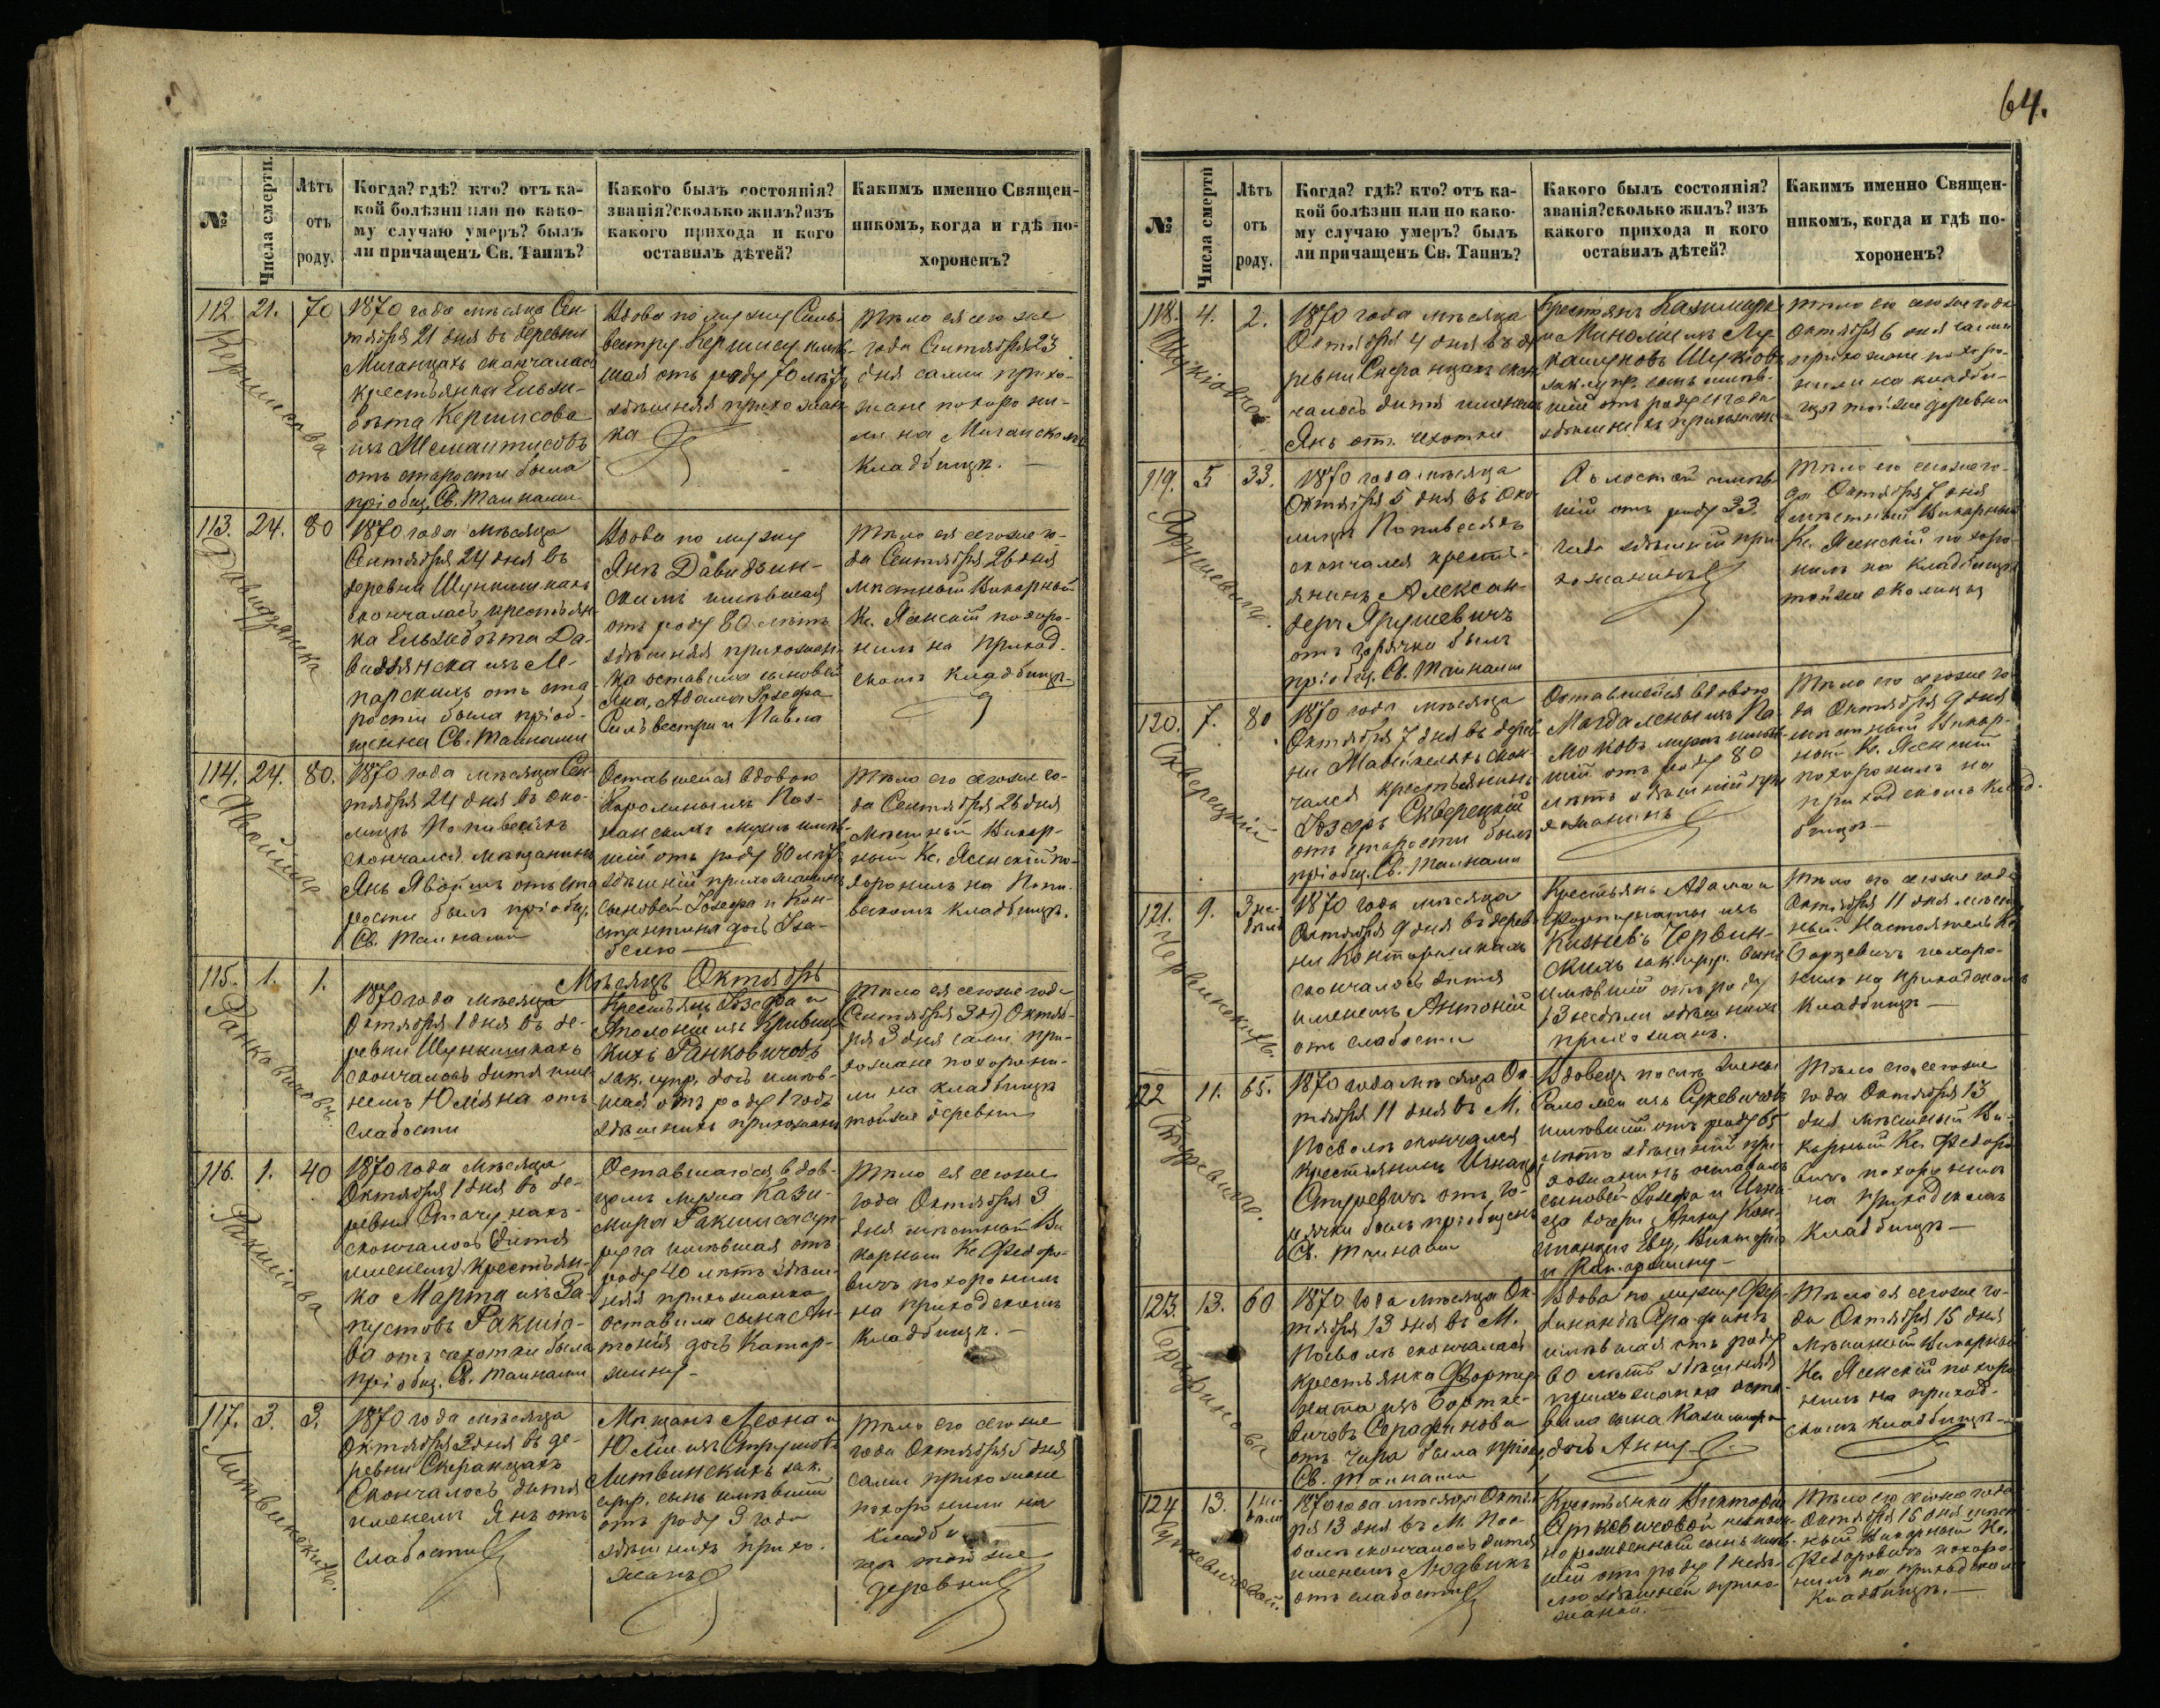 64.
№
Числа смерти.
Лѣтъ
отъ
роду.
Когда? гдѣ? кто? отъ ка-
кой болѣзни или по како-
му случаю умеръ? былъ
ли причащенъ Св. Таинъ?
Какого былъ состоянія?
званія? сколько жилъ? изъ
какого прихода и кого
оставилъ дѣтей?
Какимъ именно Священ-
никомъ, когда и гдѣ по-
хороненъ?
112. 21. 70
Кермисова
1870 года мѣсяца Сен-
тября 21 дня въ деревни
Миганцахъ скончалась
крестьянка Ельзи-
бѣта Кермисова
изъ
отъ старости была
пріобщ. Св. Тайнами
Вдова по мужу Силь-
вестру Кермису имѣв-
шая отъ роду 70 лѣтъ
здѣшняя прихожан-
ка
Тѣло ея сего же
года Сентября 23
дня сами прихо-
жане похорони-
ли на Миганскомъ
кладбищѣ.
113. 24. 80
Давидзянска
1870 года мѣсяца
Сентября 24 дня въ
деревни Шункишкахъ
скончалась крестьян-
ка Ельзибѣта Да-
видзянска изъ Ле-
парскихъ отъ ста
рости была пріоб-
щенна Св. Тайнами
Вдова по мужу
Янѣ Давидзин-
скимъ имѣвшая
отъ роду 80 лѣтъ
здѣшняя прихожан-
ка оставила сыновей
Яна, Адама Іозефа
Сильвестра и Павла
Тѣло ея сегоже го-
да Сентября 26 дня
мѣстный Викарный
Кс. Ясенскій похоро-
нилъ на приход-
скомъ кладбищѣ
114. 24. 80.
Явойшъ
1870 года мѣсяца Сен-
тября 24 дня въ око-
лицѣ Попивесяхъ
скончался мѣщанинъ
Янъ Явойшъ отъ ста
рости былъ пріобщ.
Св. Тайнами
Оставшейся вдовою
Каролины изъ Поз-
нанскихъ мужъ имѣв-
шій отъ роду 80 лѣтъ
здѣшній прихожанинъ
сыновей Іозефа и Кон-
стантина дочь Иза-
белю
Тѣло его сегоже го-
да Сентября 26 дня
мѣстный Викар-
ный Кс. Ясенскій по-
хоронилъ на Попи-
вескомъ кладбищѣ.
Мѣсяцъ Октябрь
115. 1. 1.
Ранковичовъ.
1870 года мѣсяца
Октября 1 дня въ де-
ревни Шункишкахъ
скончалось дитя име-
немъ Юліяна отъ
слабости
Крестьянъ Іозефа и
Аполоніи изъ Кривиц-
кихъ Ранковичовъ
зак. супр. дочь имѣв-
шая отъ роду 1 годъ
здѣшнихъ прихожанъ
Тѣло ея сегоже года
Октяб-
ря 3 дня сами при-
хожане похорони-
ли на кладбищѣ
тойже деревни
116. 1. 40
Ракшова
1870 года мѣсяца
Октября 1 дня въ де-
ревни
скончалось дитя
именемъ крестьян-
ка Марта изъ Ра-
пустовъ Ракшо-
ва отъ чахотки была
пріобщ. Св. Тайнами
Оставшагося вдов-
цомъ мужа Кази-
мира Ракши суп-
руга имѣвшая отъ
роду 40 лѣтъ здѣш-
няя прихожанка
оставила сына Ан-
тонія дочь Катар-
жину
Тѣло ея сегоже
года Октября 3
дня мѣстный Ви
карный Кс. Федоро-
вичъ похоронилъ
на приходскомъ
кладбищѣ.
117. 3. 3.
Литвинскихъ.
1870 года мѣсяца
Октября 3 дня въ де-
ревни Скеранцахъ
скончалось дитя
именемъ Янъ отъ
слабости
Мѣщанъ Леона и
Юліи изъ
Литвинскихъ зак.
супр. сынъ имѣвшій
отъ роду 3 года
здѣшнихъ прихо-
жанъ
Тѣло его сегоже
года Октября 5 дня
сами прихожане
похоронили на
кладби
щѣ тойже
деревни
№
Числа смерти
Лѣтъ
отъ
роду.
Когда? гдѣ? кто? отъ ка-
кой болѣзни или по како-
му случаю умеръ? былъ
ли причащенъ Св. Таинъ?
Какого былъ состоянія?
званія? сколько жилъ? изъ
какого прихода и кого
оставилъ дѣтей?
Какимъ именно Священ-
никомъ, когда и гдѣ по-
хороненъ?
118. 4. 2.
1870 года мѣсяца
Октября 4 дня въ де
ревни Скеранцахъ скон-
чалось дитя именемъ
Янъ отъ чахотки
Крестьянъ Казимира
зак. супр. сынъ имѣв-
шій отъ роду 2 года
здѣшнихъ прихожанъ
Тѣло его сегоже года
Октября 6 дня сами
прихожане похоро-
нили на кладби-
щѣ тойже деревни
119. 5 33.
Ярушевичъ.
1870 года мѣсяца
Октября 5 дня въ око-
лицѣ Попивесяхъ
скончался крестья-
нинъ Алексан-
деръ Ярушевичъ
отъ горячки былъ
пріобщ. Св. Тайнами
Холостой имѣв-
шій отъ роду 33
года здѣшній при
хожанинъ
Тѣло его сегоже го-
да Октября 7 дня
мѣстный Викарный
Кс. Ясенскій похоро-
нилъ на кладбищѣ
тойже околицы
120. 7. 80
Скверецкій
1870 года мѣсяца
Октября 7 дня въ дерев-
ни скон-
чался крестьянинъ
Іозефъ Скверецкій
отъ старости былъ
пріобщ. Св. Тайнами
Оставшейся вдовою
Магдалены изъ
мужъ имѣв-
шій отъ роду 80
лѣтъ здѣшній при
хожанинъ
Тѣло его сегоже го-
да Октября 9 дня
мѣстный Викар-
ный Кс. Ясенскій
похоронилъ на
приходскомъ клад-
бищѣ
121. 9. 3 не-
дѣль
Червинскихъ.
1870 года мѣсяца
Октября 9 дня въ дерев-
ни
скончалось дитя
именемъ Антоній
отъ слабости
Крестьянъ Адама и
Фортунаты изъ
Червин-
скихъ зак. супр. сынъ
имѣвшій отъ роду
3 недѣли здѣшнихъ
прихожанъ.
Тѣло его сегоже года
Октября 11 дня мѣст
ный Настоятель Кс
похоро-
нилъ на приходскомъ
кладбищѣ
122 11. 65.
1870 года мѣсяца Ок-
тября 11 дня въ М.
Посволѣ скончался
крестьянинъ Игнацъ
отъ го-
рячки былъ пріобщенъ
Св. Тайнами
Вдовецъ послѣ жены
Саломеи изъ
имѣвшій отъ роду 65
лѣтъ здѣшній при-
хожанинъ оставилъ
сыновей Іозефа и Игна-
ца дочери Анну Кон-
станцію Еву, Викторію
и Катаржину
Тѣло его сегоже
года Октября 13
дня мѣстный Ви-
карный Кс. Федоро
вичъ похоронилъ
на приходскомъ
кладбищѣ
123. 13. 60
Серафинова
1870 года мѣсяца Ок-
тября 13 дня въ М.
Посволѣ скончалась
крестьянка Форту-
ната изъ Бортке-
вичовъ Серафинова
отъ была пріобщ.
Св. Тайнами
Вдова по мужу Фер-
динандѣ Серафинѣ
имѣвшая отъ роду
60 лѣтъ здѣшняя
прихожанка оста-
вила сына Казимира
дочь Анну
Тѣло ея сегоже го-
да Октября 15 дня
мѣстный Викарный
Кс. Ясенскій похоро
нилъ на приход-
скомъ кладбищѣ
124 13. 1 не-
дѣли
1870 года мѣсяца Октяб-
ря 13 дня въ М. Пос-
волѣ скончалось дитя
именемъ Людвикъ
отъ слабости
Крестьянки Викторіи
сынъ имѣв-
шій отъ роду 1 недѣ-
лю здѣшней прихо-
жанки.
Тѣло его сегоже года
Октября 15 дня мѣст-
ный Викарный Кс.
Федоровичъ похоро-
нилъ на приходскомъ
кладбищѣ.